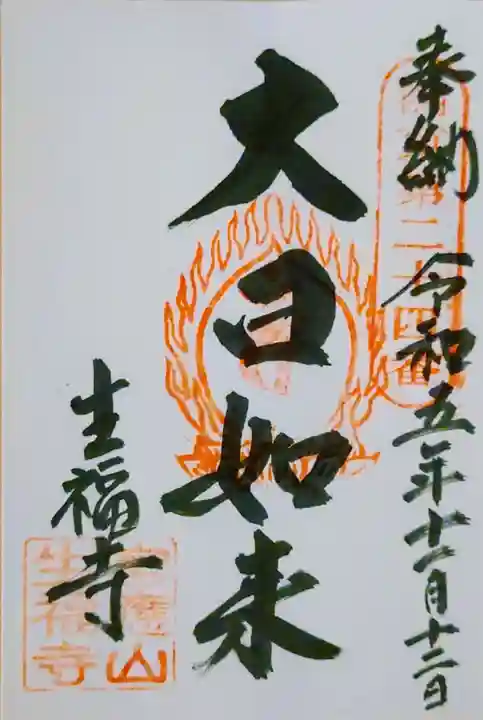 奉納 令和五年十一月十二日
第二十四番
大日如来
生福寺
山
生福寺